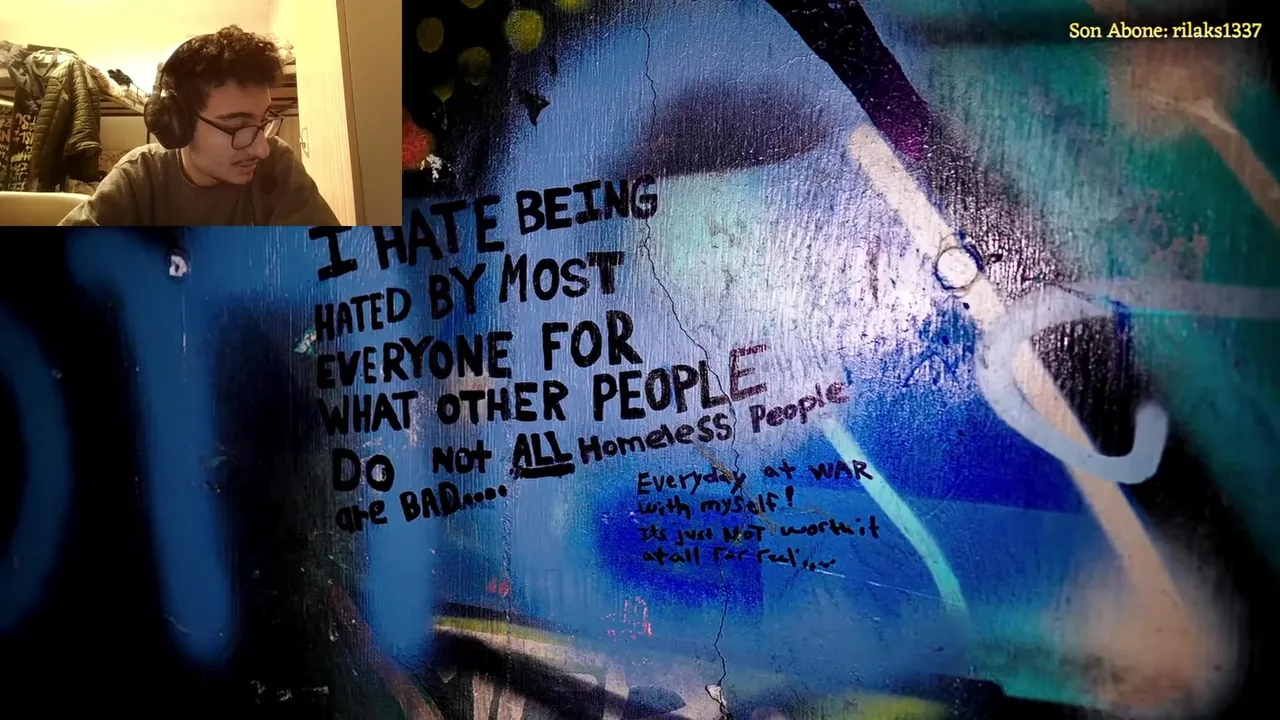 Son Abone: rilaks1337
I HATE BEING
HATED BY MOST
EVERYONE FOR
WHAT OTHER PEOPLE
DO NOT ALL Homeless People
are BAD....
Everyday at WAR
with myself!
Its just NOT worth it
at all For real....